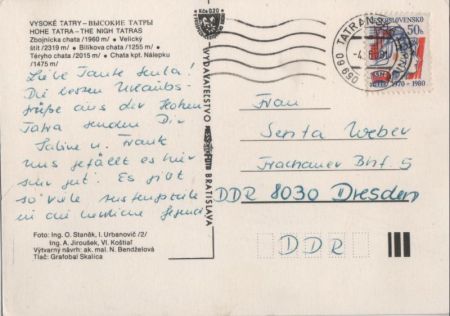 VYSOKÉ TATRY–ВЫСОКИЕ ТАТРЫ
HOHE TATRA–THE HIGH TATRAS
Zbojnícka chata /1960 m/ • Velický
štít /2319 m/ • Bilíkova chata /1255 m/ •
Téryho chata /2015 m/ • Chata kpt. Nálepku
/1475 m/
Liebe Tante Senta!
Die besten Urlaubs-
grüße aus der Hohen
Tatra senden Dir
Sabine u. Frank
uns gefällt es hier
sehr gut. Es gibt
so viele
in die herrliche Gegend
Foto: Ing. O. Staněk, I. Urbanovič /2/
Ing. A. Jiroušek, Vl. Koštial
Výtvarný návrh: ak. mal. N. Bendželová
Tlač: Grafobal Skalica
Kčs 0,20
VYDAVATEĽSTVO BRATISLAVA
05960 TATRANS
ČESKOSLOVENSKO
50h
1970–1980
Frau
Senta Weber
Trachauer Bhf. 5
DDR 8030 Dresden
DDR